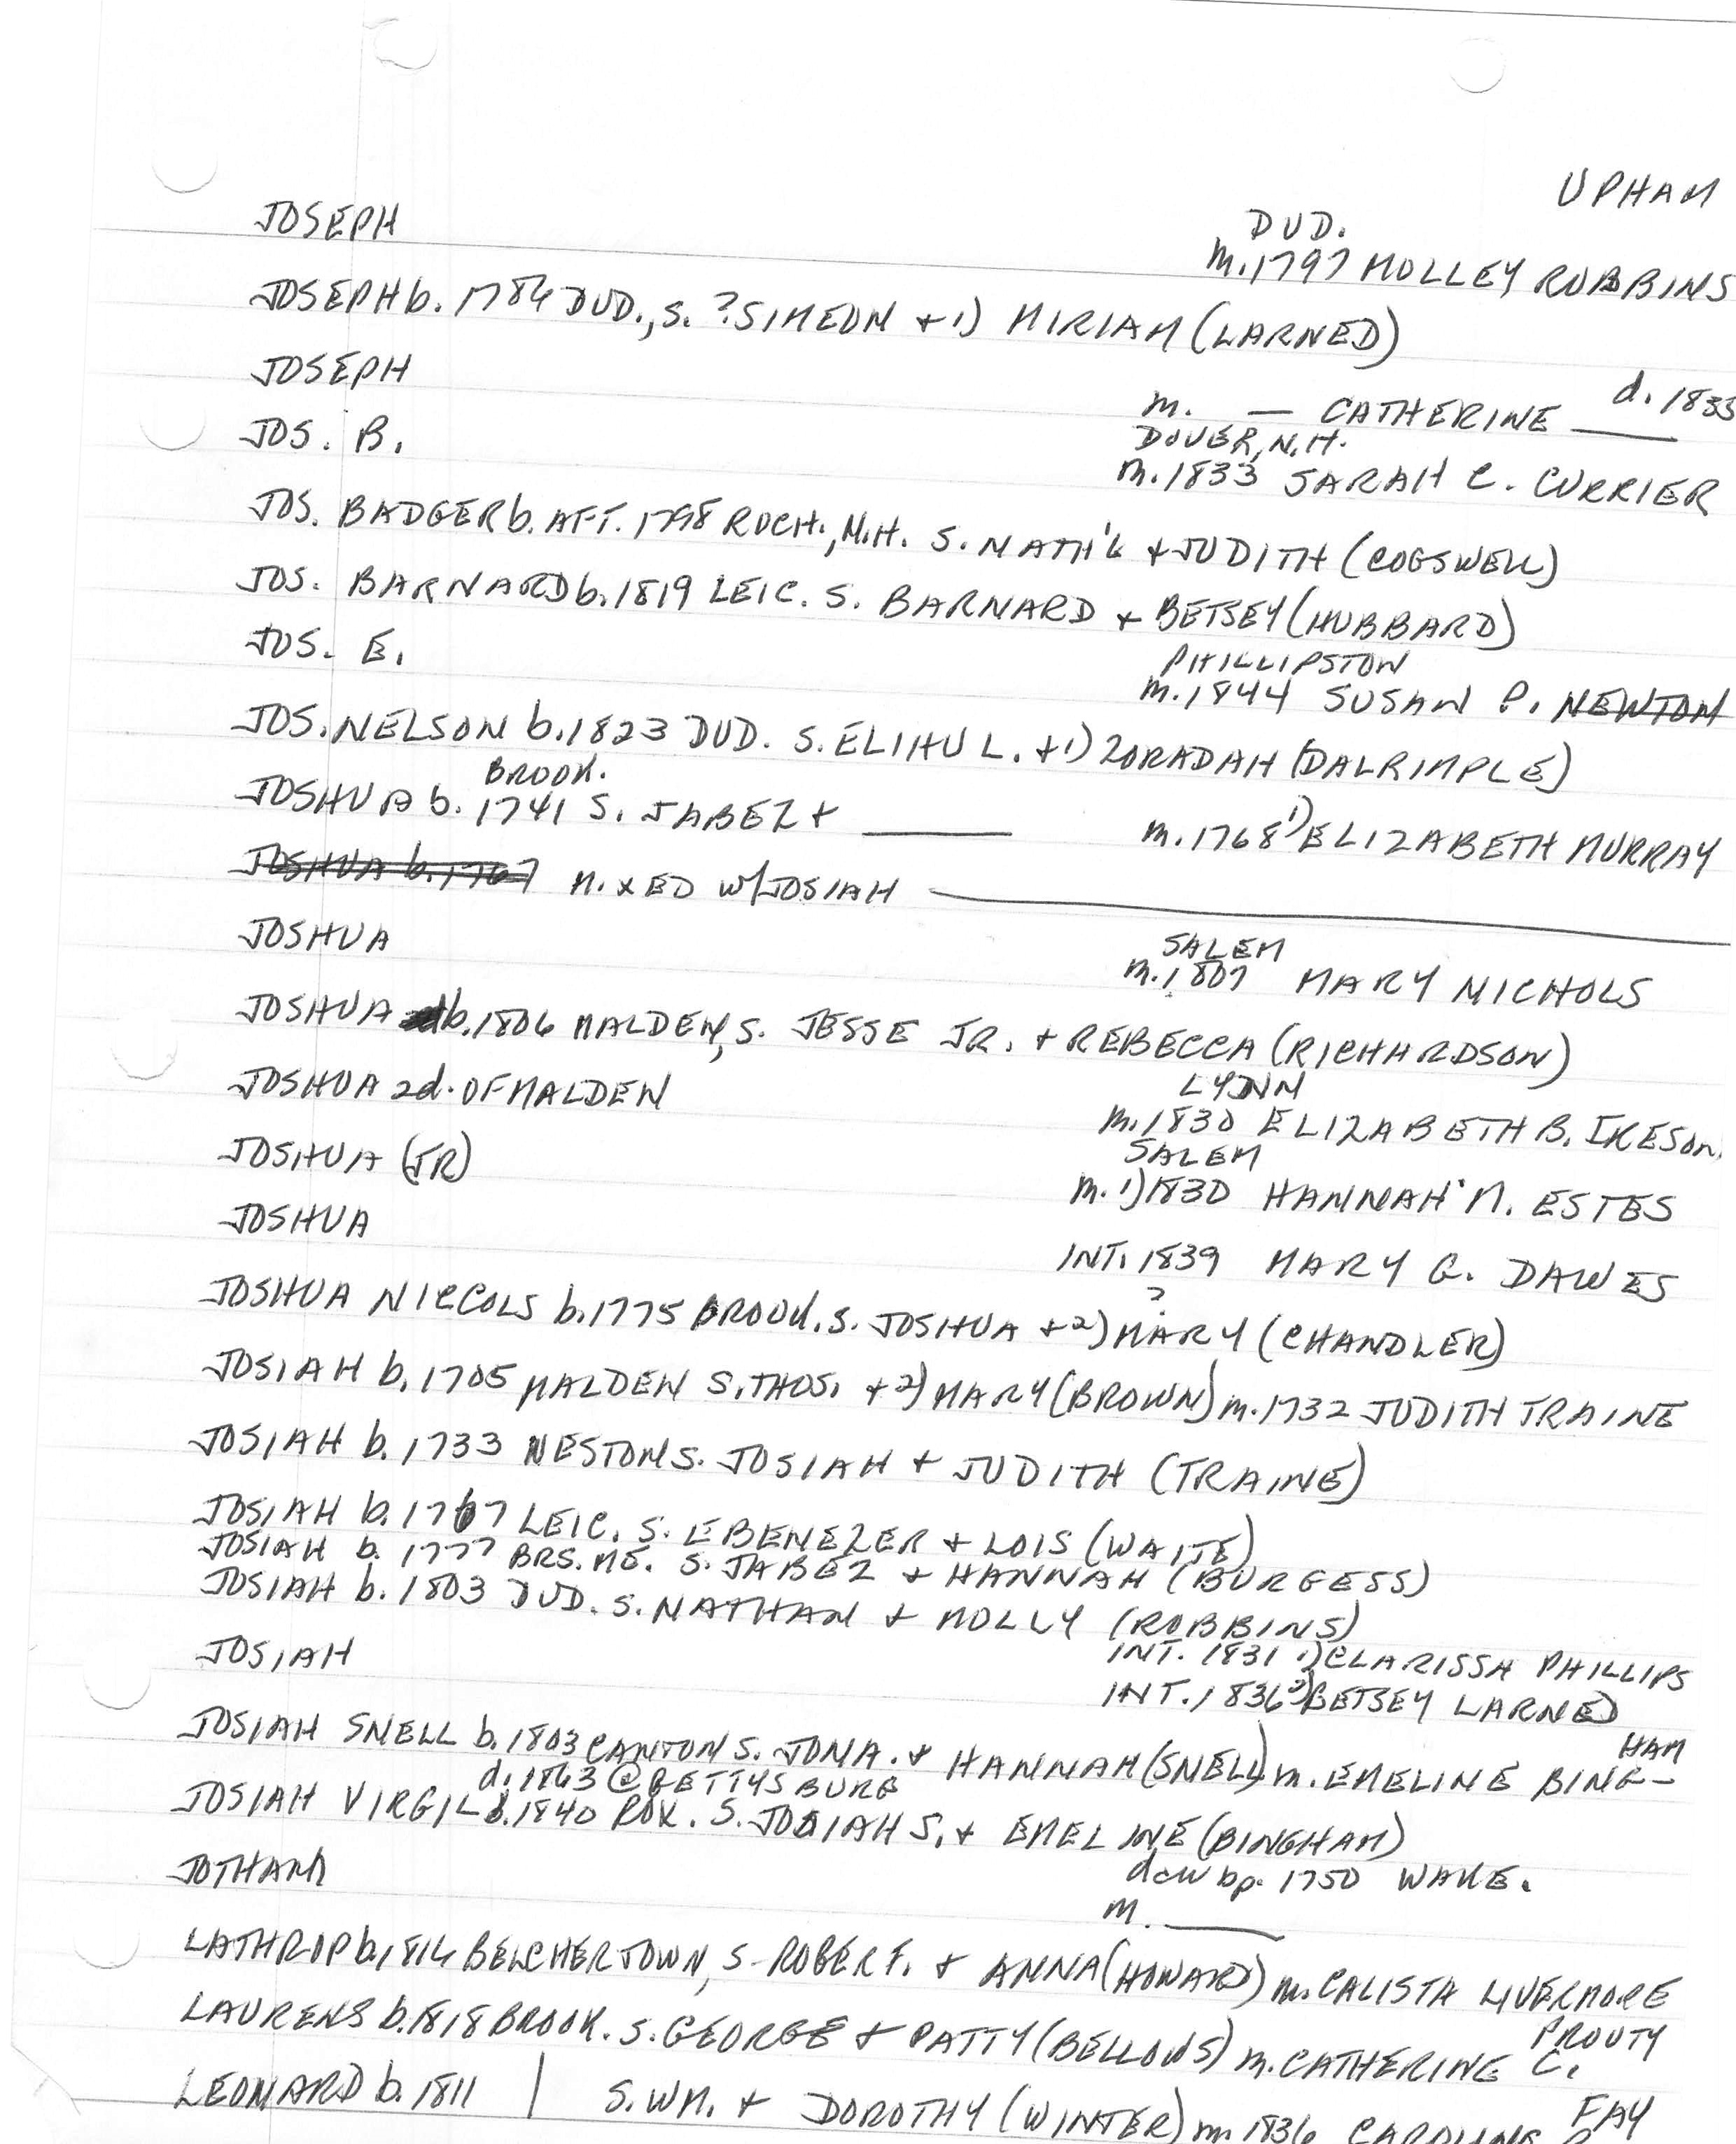 UPHAM
JOSEPH DUD.
m.1797 MOLLEY ROBBINS
JOSEPH b. 1786 DUD., S. ?SIMEON + 1) MIRIAM (LARNED)
JOSEPH m. — CATHERINE ____ d. 1833
JOS. B. DOVER, N.H.
m.1833 SARAH C. CURRIER
JOS. BADGER b. AFT. 1798 ROCH., N.H. S. NATH'L + JUDITH (COGSWELL)
JOS. BARNARD b. 1819 LEIC. S. BARNARD + BETSEY (HUBBARD)
JOS. E. PHILLIPSTON
m.1844 SUSAN P. NEWTON
JOS. NELSON b.1823 DUD. S. ELIHU L. + 1) ZORADAH (DALRIMPLE)
BROOK.
JOSHUA b. 1741 S. JABEZ + ____ m.1768 1) ELIZABETH MURRAY
JOSHUA b. 1767 MIXED W/JOSIAH ____
JOSHUA SALEM
m.1807 MARY NICHOLS
JOSHUA b.1806 MALDEN, S. JESSE JR. + REBECCA (RICHARDSON)
JOSHUA 2d. OF MALDEN LYNN
m.1830 ELIZABETH B. IRESON
JOSHUA (JR) SALEM
m. 1) 1830 HANNAH M. ESTES
JOSHUA INT. 1839 MARY G. DAWES
?
JOSHUA NICCOLS b.1775 BROOK. S. JOSHUA + 2) MARY (CHANDLER)
JOSIAH b. 1705 MALDEN S. THOS. + 2) MARY (BROWN) m.1732 JUDITH TRAINE
JOSIAH b. 1733 WESTON S. JOSIAH + JUDITH (TRAINE)
JOSIAH b. 1767 LEIC. S. EBENEZER + LOIS (WAITE)
JOSIAH b. 1777 BRS. ME. S. JABEZ + HANNAH (BURGESS)
JOSIAH b. 1803 DUD. S. NATHAN + MOLLY (ROBBINS)
JOSIAH INT. 1831 1) CLARISSA PHILLIPS
INT. 1836 2) BETSEY LARNED
JOSIAH SNELL b. 1803 CANTON S. JONA. + HANNAH (SNELL) m. EMELINE BING-
HAM
d. 1863 @ GETTYSBURG
JOSIAH VIRGIL b. 1840 ROX. S. JOSIAH S. + EMELINE (BINGHAM)
JOTHAM dau bp. 1750 WAKE.
m. ____
LATHROP b. 1816 BELCHERTOWN, S. ROBER F. + ANNA (HOWARD) m. CALISTA LIVERMORE
PROUTY
LAURENS b. 1818 BROOK. S. GEORGE + PATTY (BELLOWS) m. CATHERINE C.
FAY
LEONARD b. 1811 | S. WM. + DOROTHY (WINTER) m. 1836 CAROLINE